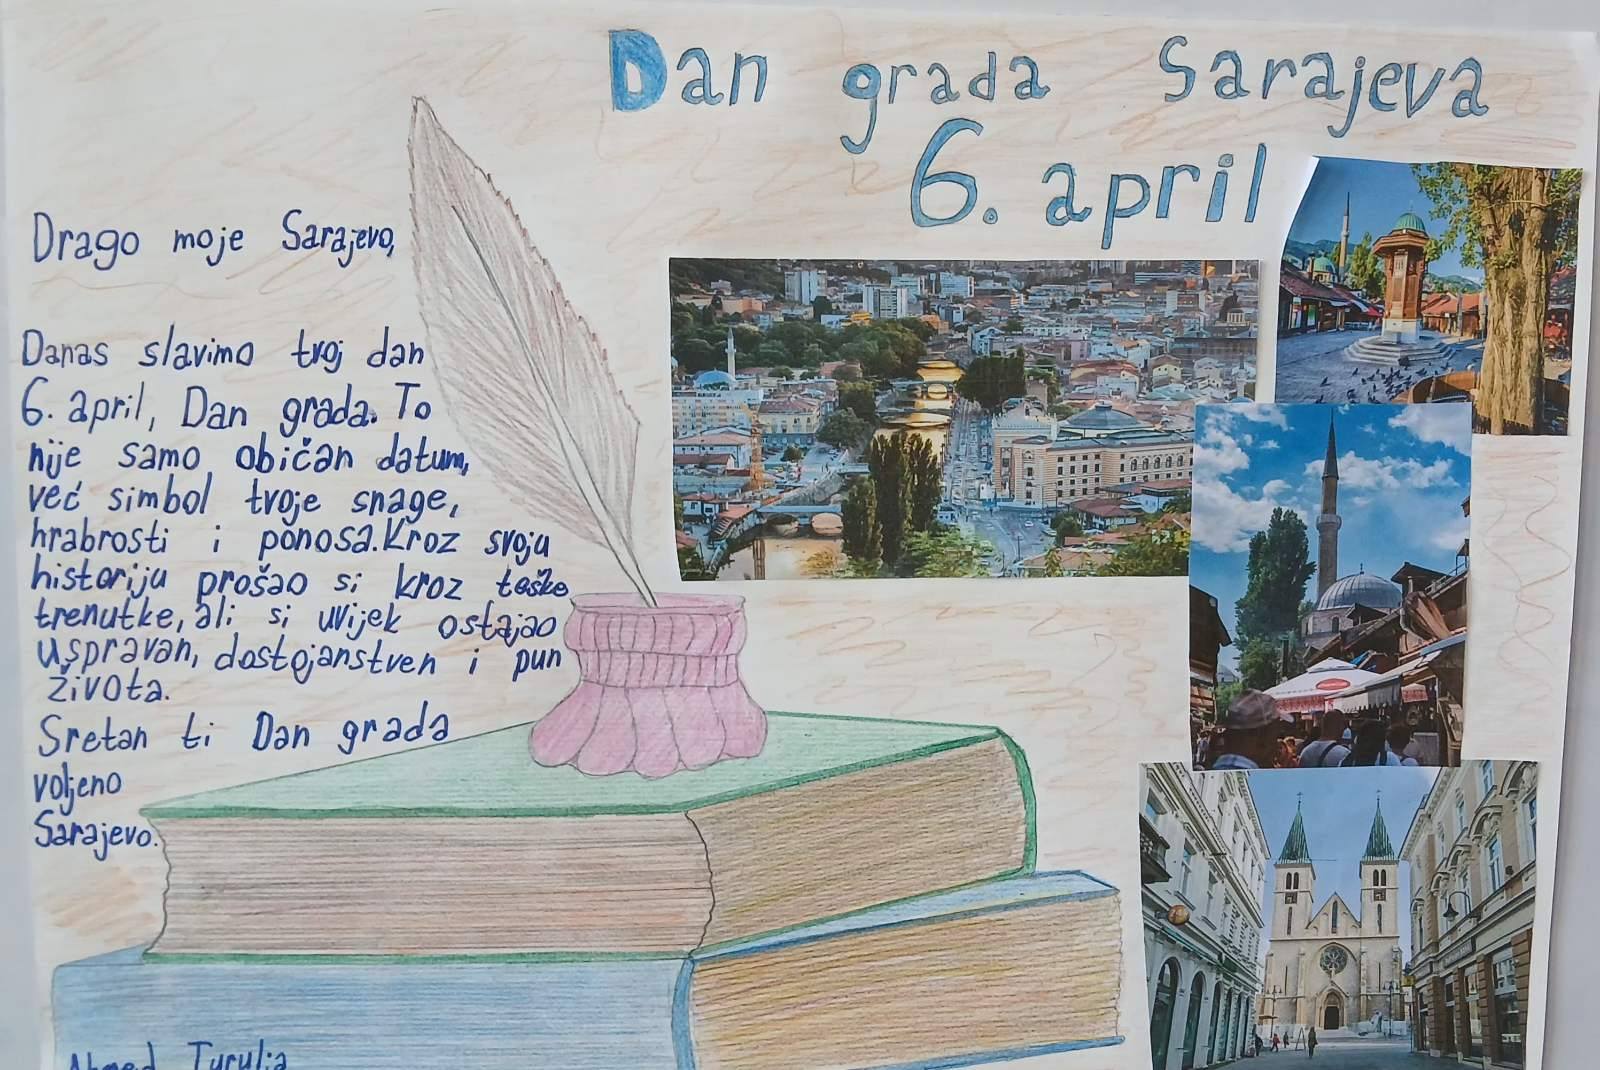 Dan grada Sarajeva
6. april
Drago moje Sarajevo,
Danas slavimo tvoj dan
6. april, Dan grada. To
nije samo običan datum,
već simbol tvoje snage,
hrabrosti i ponosa. Kroz svoju
historiju prošao si kroz teške
trenutke, ali si uvijek ostajao
uspravan, dostojanstven i pun
života.
Sretan ti Dan grada
voljeno
Sarajevo.
Ahmed